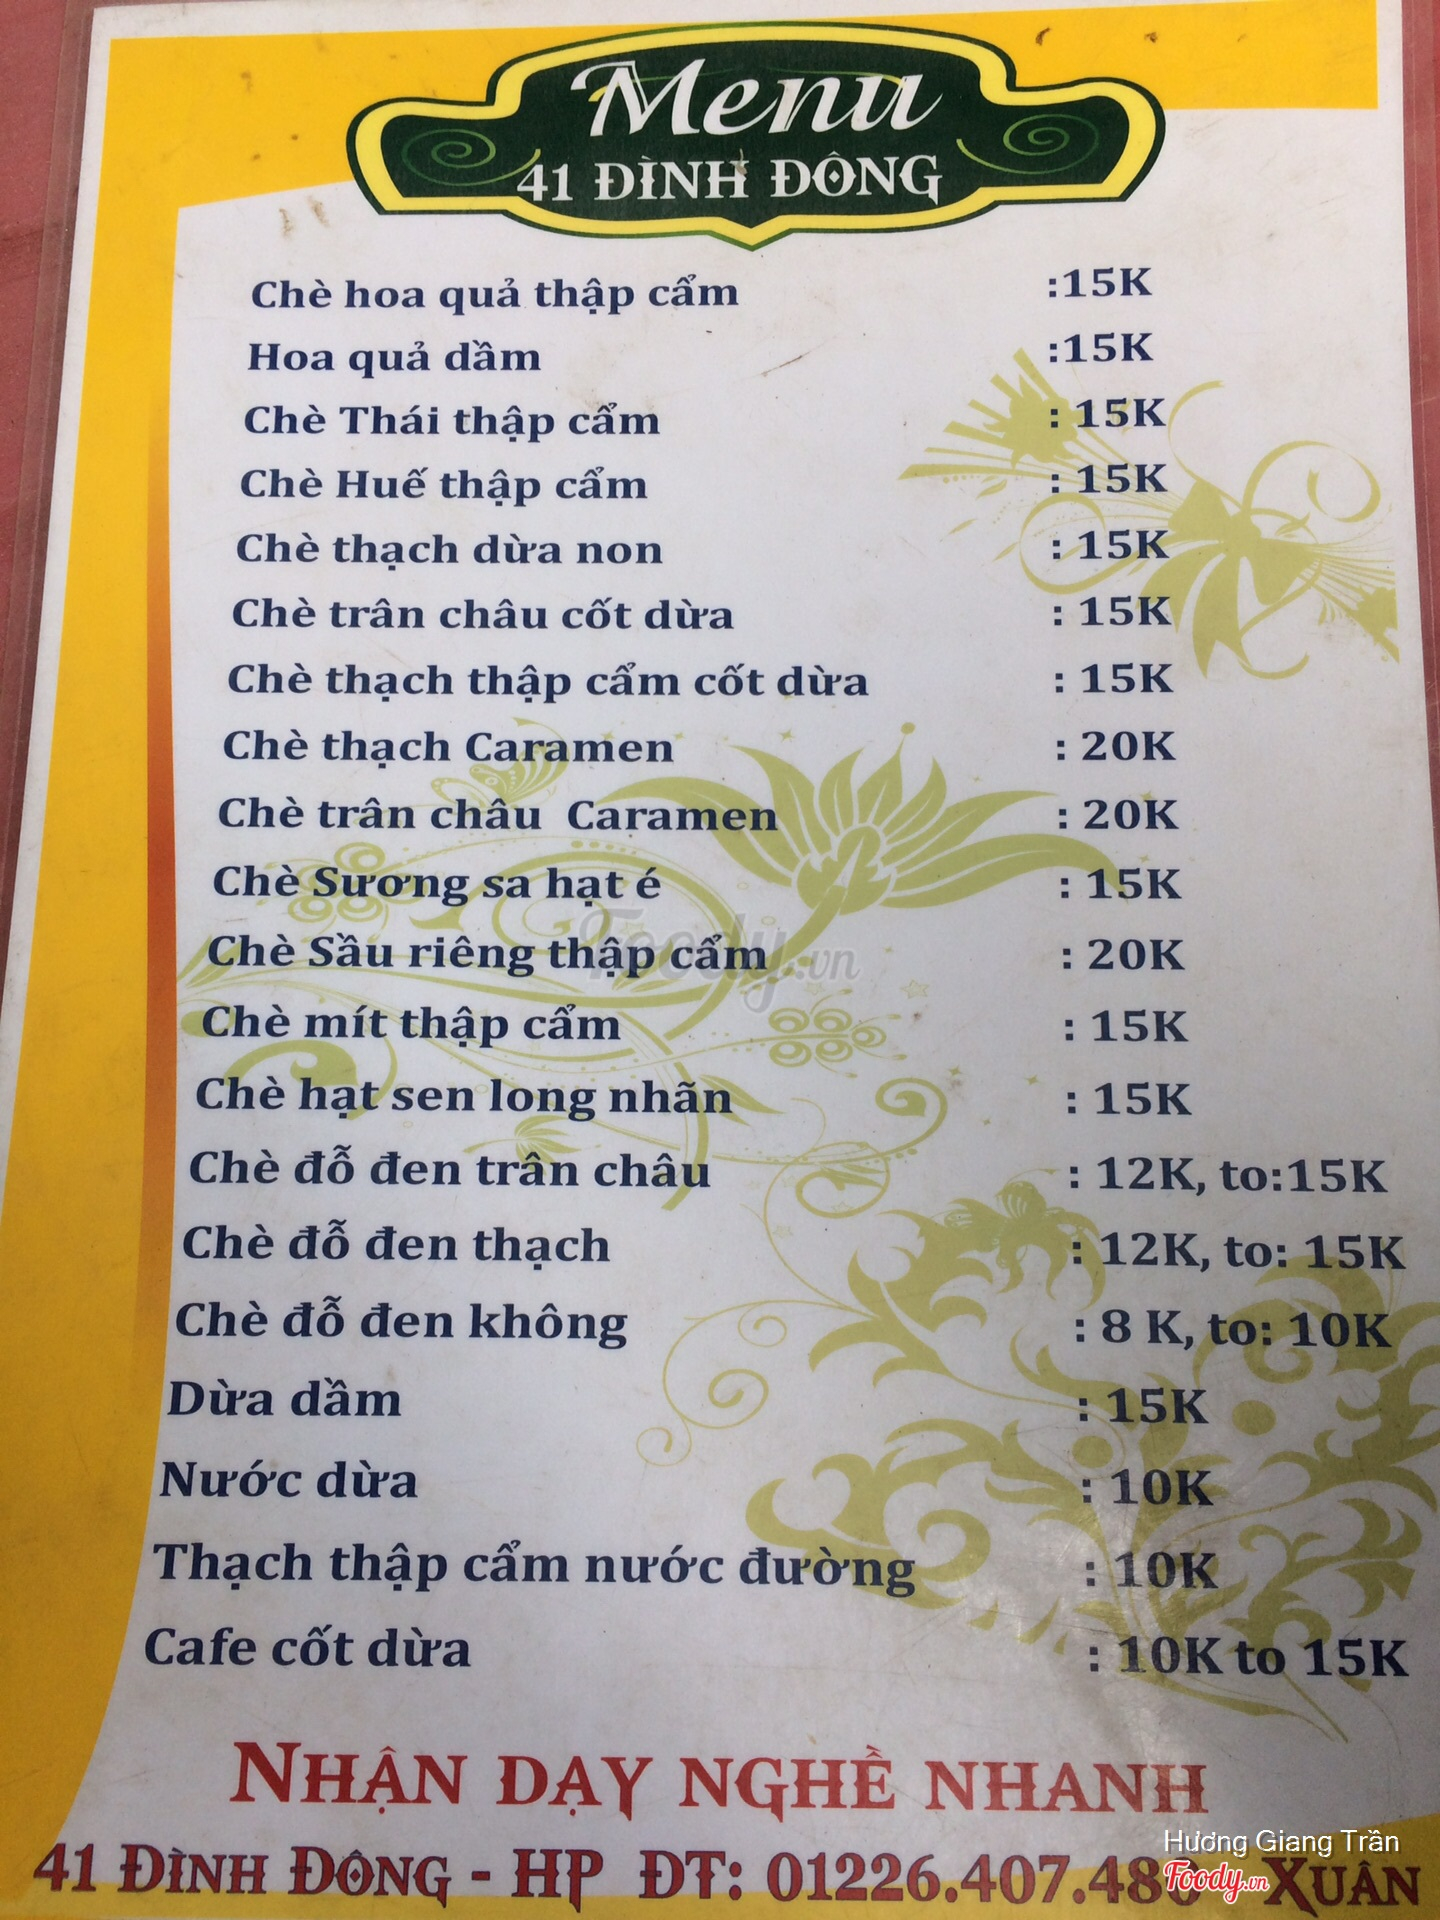 Menu
41 ĐÌNH ĐÔNG
Chè hoa quả thập cẩm :15K
Hoa quả dầm :15K
Chè Thái thập cẩm : 15K
Chè Huế thập cẩm : 15K
Chè thạch dừa non : 15K
Chè trân châu cốt dừa : 15K
Chè thạch thập cẩm cốt dừa : 15K
Chè thạch Caramen : 20K
Chè trân châu Caramen : 20K
Chè Sương sa hạt é : 15K
Chè Sầu riêng thập cẩm : 20K
Foody.vn
Chè mít thập cẩm : 15K
Chè hạt sen long nhãn : 15K
Chè đỗ đen trân châu : 12K, to:15K
Chè đỗ đen thạch : 12K, to: 15K
Chè đỗ đen không : 8 K, to: 10K
Dừa dầm : 15K
Nước dừa : 10K
Thạch thập cẩm nước đường : 10K
Cafe cốt dừa : 10K to 15K
NHẬN DẠY NGHỀ NHANH
Hương Giang Trần
41 ĐÌNH ĐÔNG - HP ĐT: XUÂN
Foody.vn